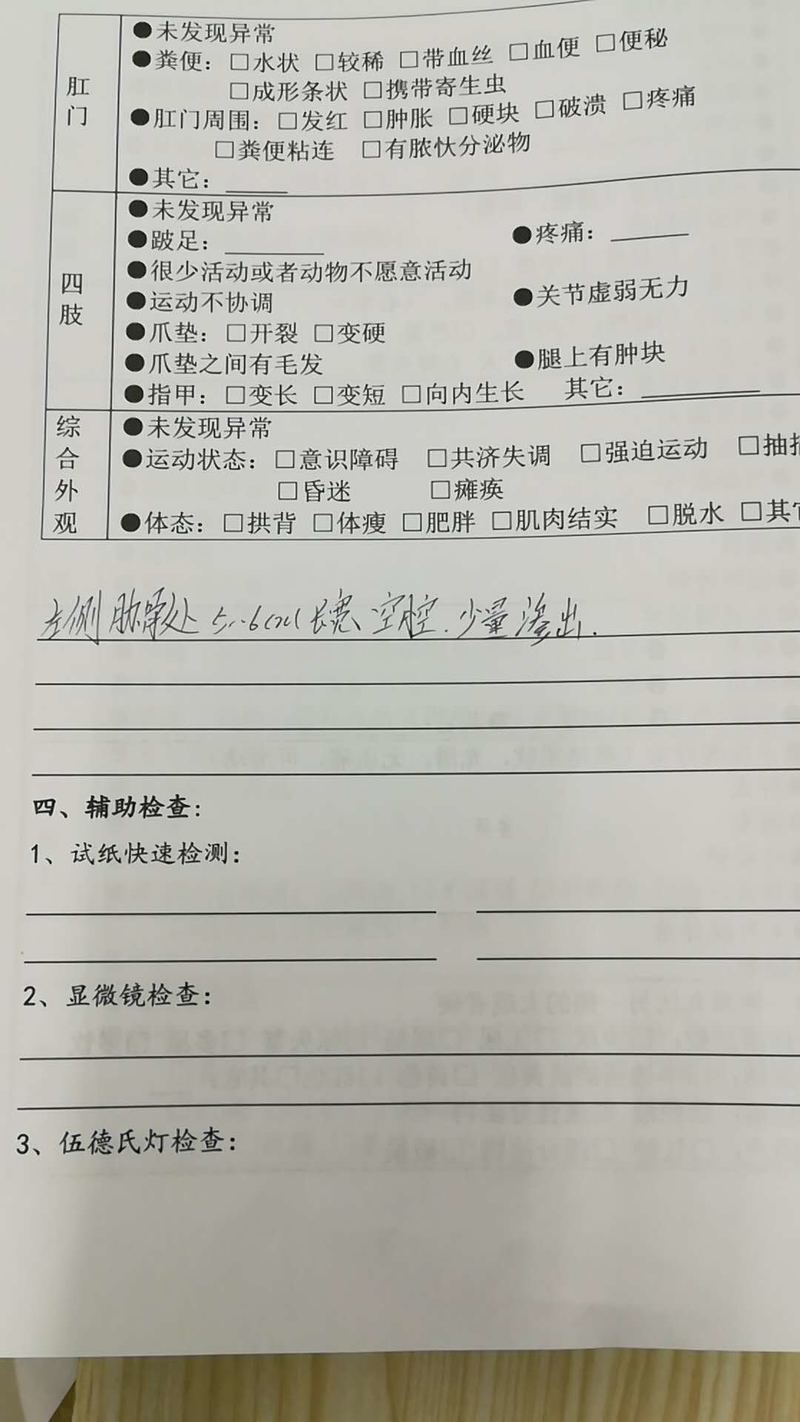 肛门
●未发现异常
●粪便：□水状 □较稀 □带血丝 □血便 □便秘
□成形条状 □携带寄生虫
●肛门周围：□发红 □肿胀 □硬块 □破溃 □疼痛
□粪便粘连 □有脓忕分泌物
●其它：
四肢
●未发现异常
●跛足： ●疼痛：
●很少活动或者动物不愿意活动
●运动不协调 ●关节虚弱无力
●爪垫：□开裂 □变硬
●爪垫之间有毛发 ●腿上有肿块
●指甲：□变长 □变短 □向内生长 其它：
综合外观
●未发现异常
●运动状态：□意识障碍 □共济失调 □强迫运动 □抽
□昏迷 □瘫痪
●体态：□拱背 □体瘦 □肥胖 □肌肉结实 □脱水 □其
左侧 处 5-6cm 长宽 空腔.少量渗出.
四、辅助检查：
1、试纸快速检测：
2、显微镜检查：
3、伍德氏灯检查：